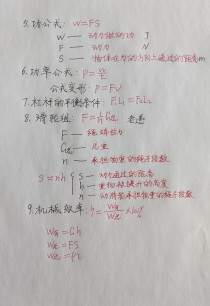 5. 功公式: W=FS
W — 动力做的功 J
F — 动力 N
S — 物体在力的方向上通过的距离 m
6. 功率公式: P=W/t
公式变形: P=FV
7. 杠杆的平衡条件: F₁L₁=F₂L₂
8. 滑轮组: F=1/n G总
F — 绳端拉力
G总 — 总重
n — 承担物重的绳子段数
S=nh { S — 动力通过的距离
h — 重物被提升的高度
n — 动滑轮承担物重的绳子段数
9. 机械效率: η=W有/W总×100%
W有=Gh
W总=FS
W总=Pt